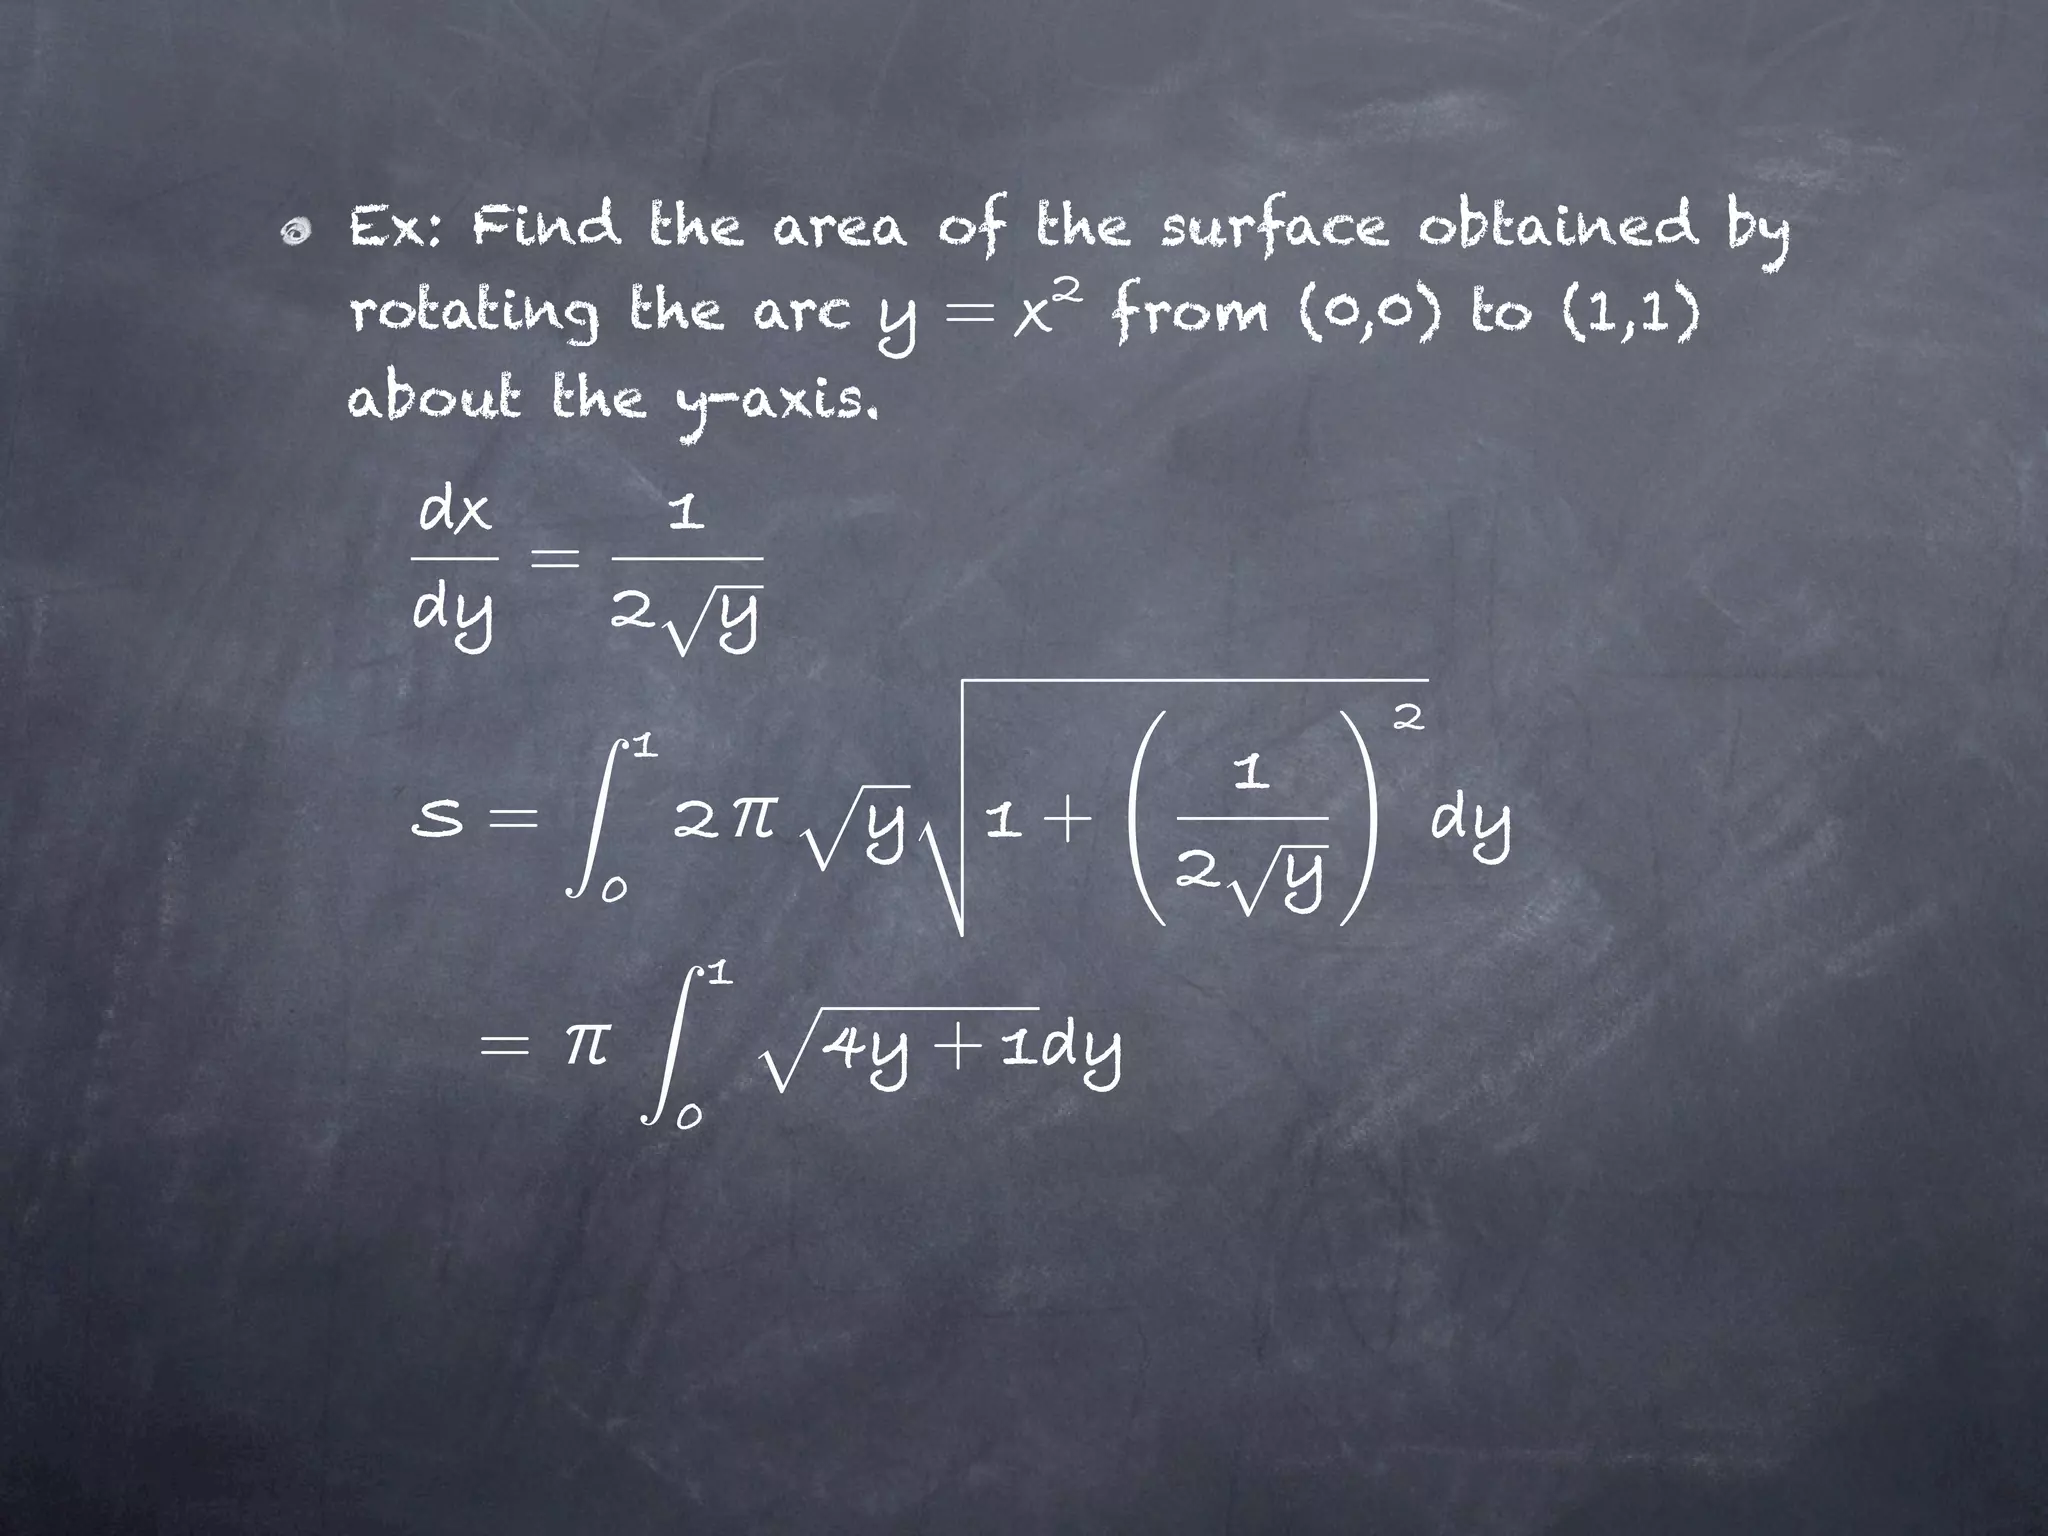 Ex: Find the area of the surface obtained by
rotating the arc y = x² from (0,0) to (1,1)
about the y-axis.
dx/dy = 1/(2√y)
S = ∫₀¹ 2π √y √(1 + (1/(2√y))²) dy
= π ∫₀¹ √(4y + 1)dy